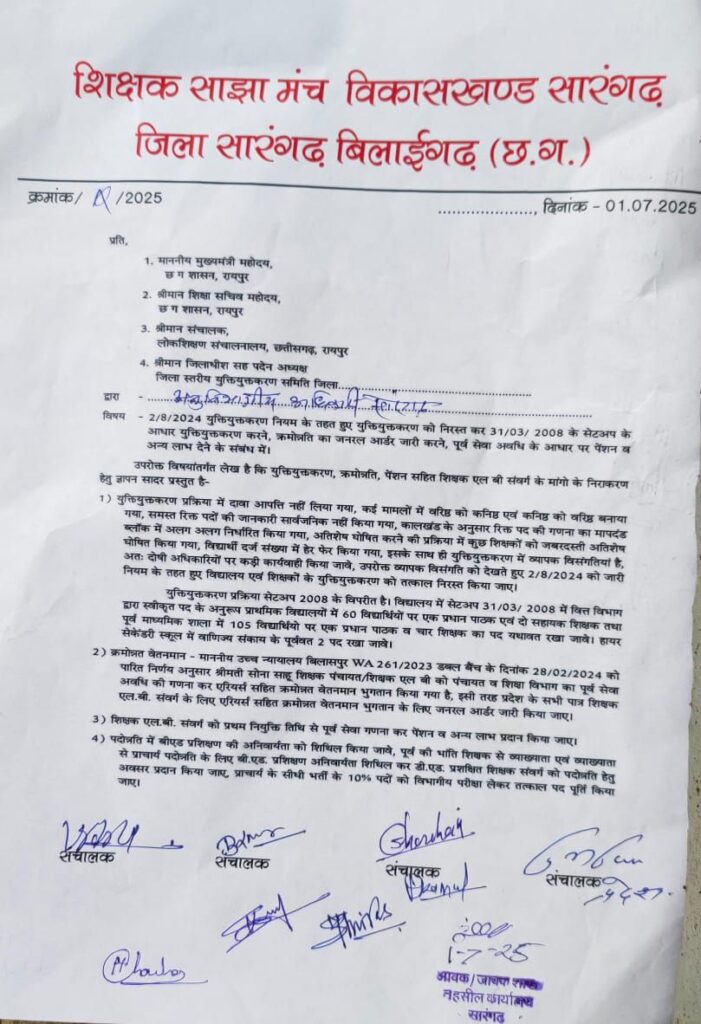 शिक्षक साझा मंच विकासखण्ड सारंगढ़
जिला सारंगढ़ बिलाईगढ़ (छ.ग.)
क्रमांक/ /2025
...................., दिनांक - 01.07.2025
प्रति,
1. माननीय मुख्यमंत्री महोदय,
छ ग शासन, रायपुर
2. श्रीमान शिक्षा सचिव महोदय,
छ ग शासन, रायपुर
3. श्रीमान संचालक,
लोकशिक्षण संचालनालय, छत्तीसगढ़, रायपुर
4. श्रीमान जिलाधीश सह पदेन अध्यक्ष
जिला स्तरीय युक्तियुक्तकरण समिति जिला
द्वारा -
विषय - 2/8/2024 युक्तियुक्तकरण नियम के तहत हुए युक्तियुक्तकरण को निरस्त कर 31/03/ 2008 के सेटअप के
आधार युक्तियुक्तकरण करने, क्रमोन्नति का जनरल आर्डर जारी करने, पूर्व सेवा अवधि के आधार पर पेंशन व
अन्य लाभ देने के संबंध में।
उपरोक्त विषयांतर्गत लेख है कि युक्तियुक्तकरण, क्रमोन्नति, पेंशन सहित शिक्षक एल बी संवर्ग के मांगो के निराकरण
हेतु ज्ञापन सादर प्रस्तुत है-
1) युक्तियुक्तकरण प्रक्रिया में दावा आपत्ति नहीं लिया गया, कई मामलों में वरिष्ठ को कनिष्ठ एवं कनिष्ठ को वरिष्ठ बनाया
गया, समस्त रिक्त पदों की जानकारी सार्वजनिक नहीं किया गया, कालखंड के अनुसार रिक्त पद की गणना का मापदंड
ब्लॉक में अलग अलग निर्धारित किया गया, अतिशेष घोषित करने की प्रक्रिया में कुछ शिक्षकों को जबरदस्ती अतिशेष
घोषित किया गया, विद्यार्थी दर्ज संख्या में हेर फेर किया गया, इसके साथ ही युक्तियुक्तकरण में व्यापक विसंगतियां है,
अतः दोषी अधिकारियों पर कड़ी कार्यवाही किया जावे, उपरोक्त व्यापक विसंगति को देखते हुए 2/8/2024 को जारी
नियम के तहत हुए विद्यालय एवं शिक्षकों के युक्तियुक्तकरण को तत्काल निरस्त किया जाए।
युक्तियुक्तकरण प्रक्रिया सेटअप 2008 के विपरीत है। विद्यालय में सेटअप 31/03/ 2008 में वित्त विभाग
द्वारा स्वीकृत पद के अनुरूप प्राथमिक विद्यालयों में 60 विद्यार्थियों पर एक प्रधान पाठक एवं दो सहायक शिक्षक तथा
पूर्व माध्यमिक शाला में 105 विद्यार्थियो पर एक प्रधान पाठक व चार शिक्षक का पद यथावत रखा जावे। हायर
सेकेंडरी स्कूल में वाणिज्य संकाय के पूर्ववत 2 पद रखा जावे।
2) क्रमोन्नत वेतनमान - माननीय उच्च न्यायालय बिलासपुर WA 261/2023 डबल बैंच के दिनांक 28/02/2024 को
पारित निर्णय अनुसार श्रीमती सोना साहू शिक्षक पंचायत/शिक्षक एल बी को पंचायत व शिक्षा विभाग का पूर्व सेवा
अवधि की गणना कर एरियर्स सहित क्रमोन्नत वेतनमान भुगतान किया गया है, इसी तरह प्रदेश के सभी पात्र शिक्षक
एल.बी. संवर्ग के लिए एरियर्स सहित क्रमोन्नत वेतनमान भुगतान के लिए जनरल आर्डर जारी किया जाए।
3) शिक्षक एल.बी. संवर्ग को प्रथम नियुक्ति तिथि से पूर्व सेवा गणना कर पेंशन व अन्य लाभ प्रदान किया जाए।
4) पदोन्नति में बीएड प्रशिक्षण की अनिवार्यता को शिथिल किया जावे, पूर्व की भांति शिक्षक से व्याख्याता एवं व्याख्याता
से प्राचार्य पदोन्नति के लिए बी.एड. प्रशिक्षण अनिवार्यता शिथिल कर डी.एड. प्रशक्षित शिक्षक संवर्ग को पदोन्नति हेतु
अवसर प्रदान किया जाए, प्राचार्य के सीधी भर्ती के 10% पदों को विभागीय परीक्षा लेकर तत्काल पद पूर्ति किया
जाए।
संचालक
संचालक
संचालक
संचालक
1-7-25
आवक/जावक शाखा
तहसील कार्यालय
सारंगढ़